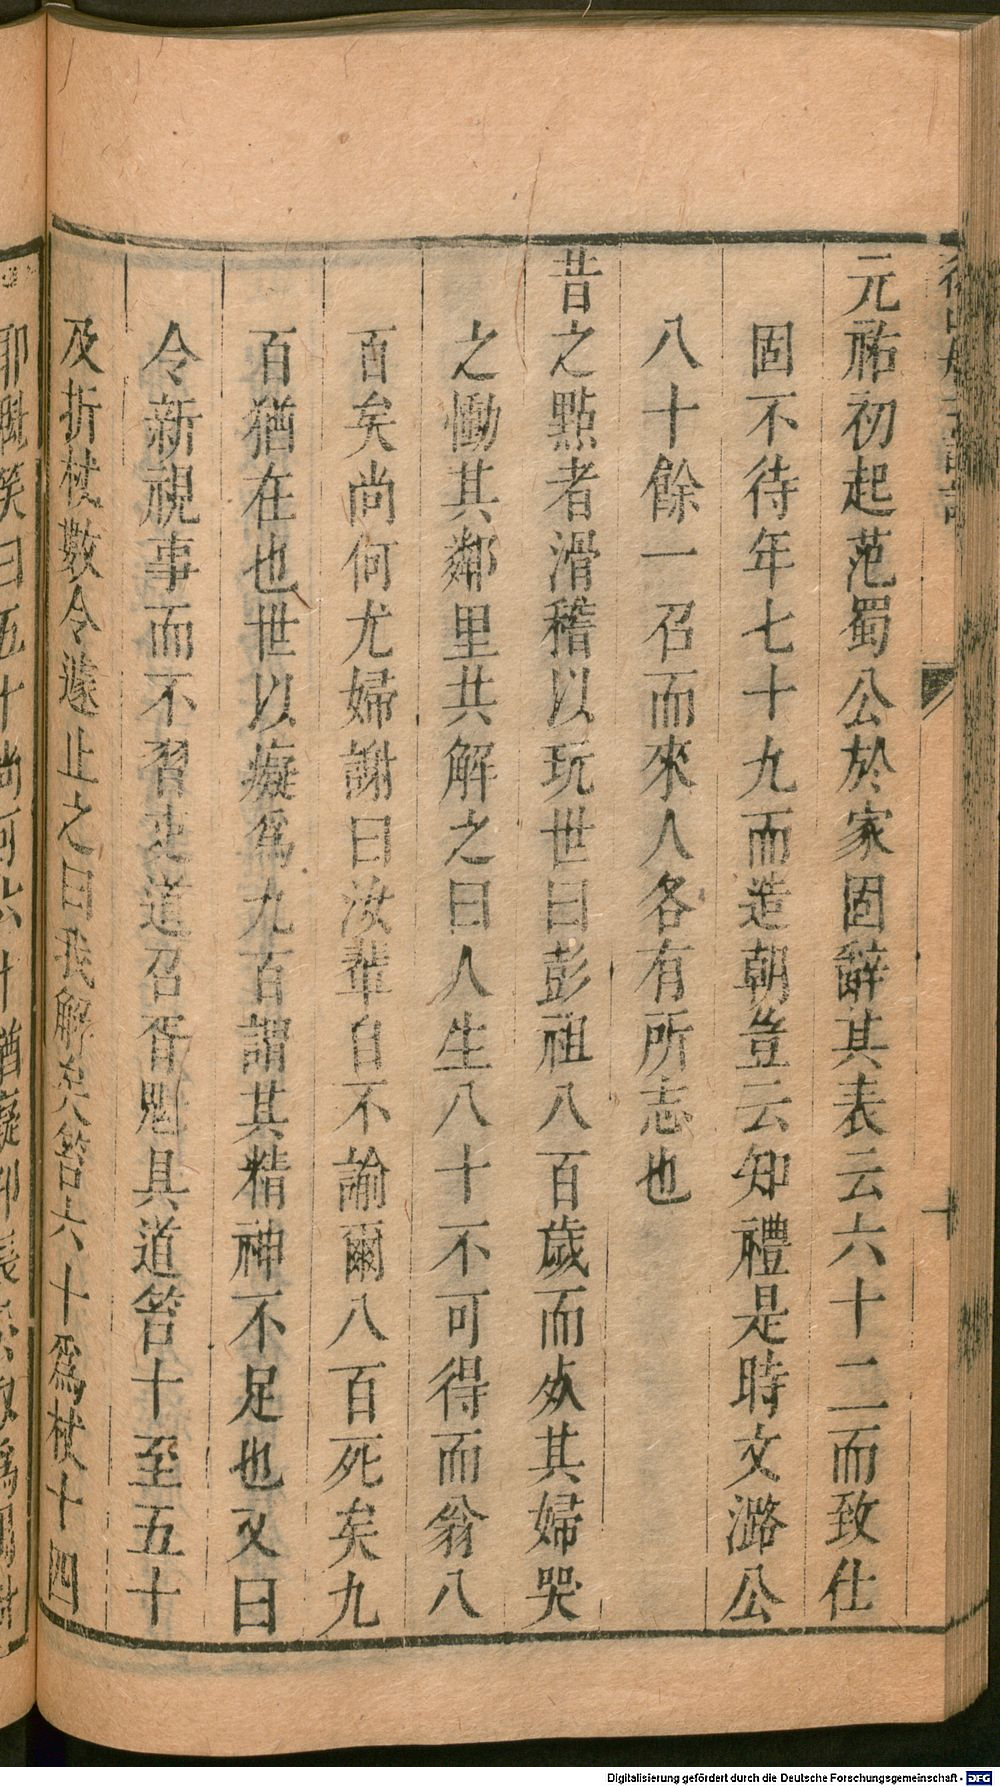 元祐初起范蜀公於家固辭其表云六十二而致仕
固不待年七十九而造朝豈云知禮是時文潞公
八十餘一召而來人各有所志也
昔之黠者滑稽以玩世曰彭祖八百歲而死其婦哭
之慟其鄰里共解之曰人生八十不可得而翁八
百矣尚何尤婦謝曰汝輩自不諭爾八百死矣九
百猶在也世以癡爲九百謂其精神不足也又曰
令新視事而不習吏道召胥魁具道笞十至五十
及折杖數令遽止之曰我解矣笞六十爲杖十四
耶魁笑曰五十尚可六十猶癡耶
Digitalisierung gefördert durch die Deutsche Forschungsgemeinschaft - DFG